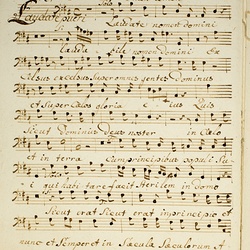 Laudate pueri
Laudate nomen domini
Lauda nomen domini Ex
Celsus excelsus super omnes gentes Dominus
et super Celos gloria e ius
Sicut Dominus deus noster in Caelo
et in terra cum principibus populi Su
i qui habitare facit Sterilem in domo
Sicut erat Sicut erat in principio et
nunc et Semper et in Saecula Saeculorum et